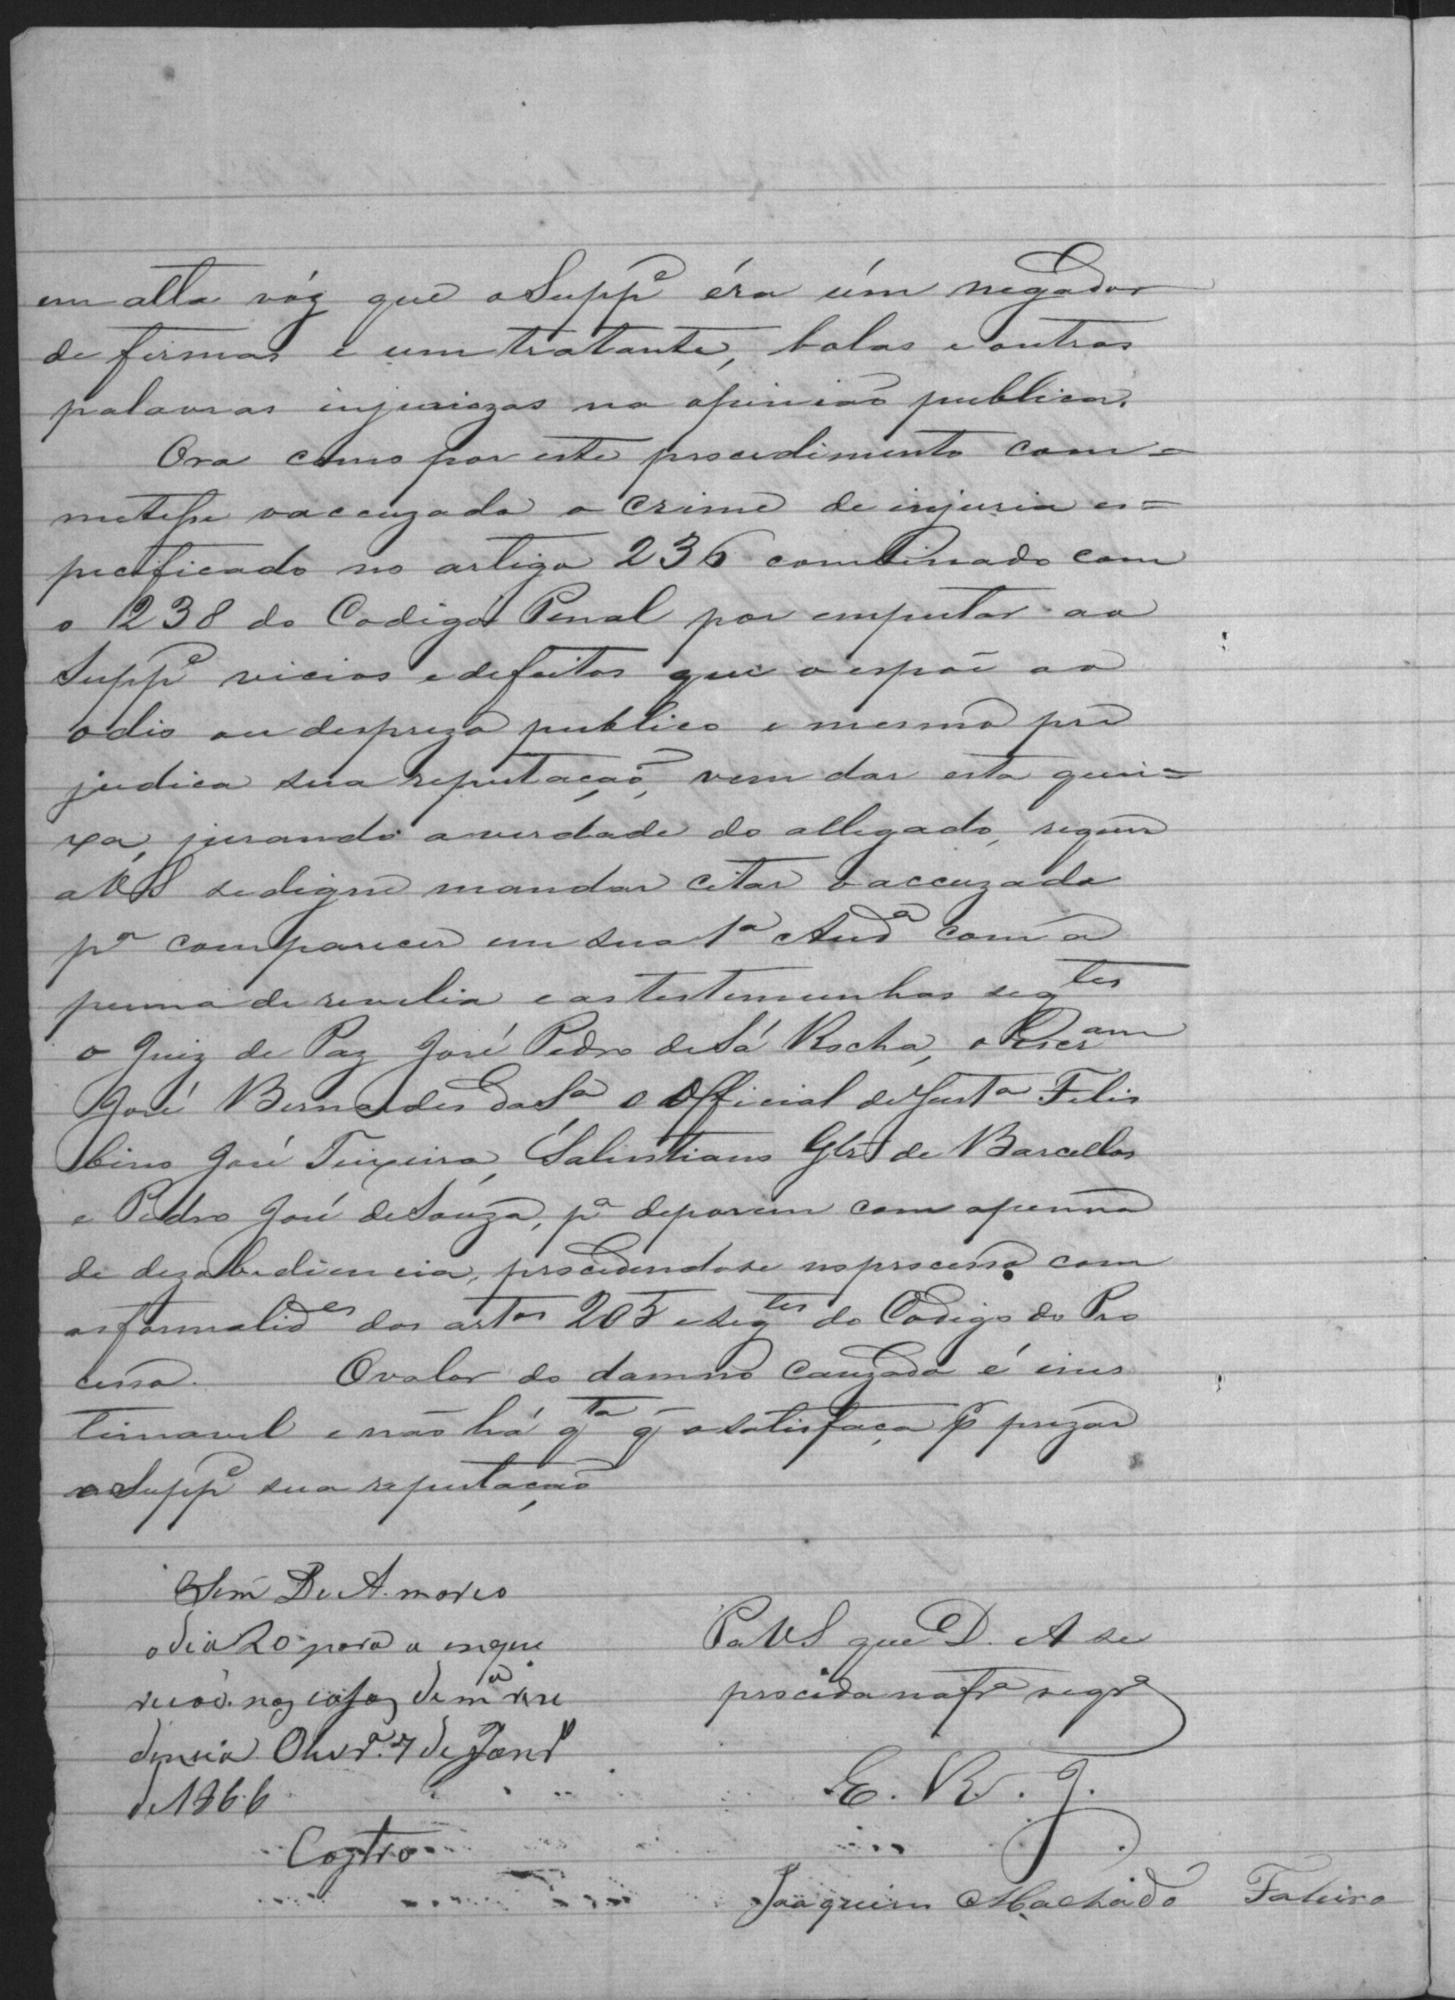 em alta vóz que o Supp.e éra úm negador
de firmas e um tratante, bolas e outras
palavras injuriozas na opinião publica.
Ora como por este procedimento com=
metesse o accuzado o crime de injuria es=
pecificado no artigo 236 combinado com
o 238 do Codigo Penal por emputar ao
Supp.e vicios e defeitos que o espõe ao
odio ou desprezo publico e mesmo pre
judica sua reputação, vem dar esta quei=
xa, jurando a verdade do allegado, requer
a VS se digne mandar citar o accuzado
p.a comparecer em sua 1.a Aud.a com a
penna de revelia e as testemunhas seg.tes
o Juiz de Paz José Pedro de Sá Rocha, o Escr.am
José Bernardes da S.a o Official de Just.a Felis
bino José Teixeira, Salustiano Glz de Barcellos
e Pedro José de Souza, p.a deporem com a penna
de dezobediencia, procedendose no processo com
as formalid.es dos art.os 205 e seg.tes do Codigo do Pro
cesso. O valor do damno cauzado é ines
timavel e não há q.ta q̃ o satisfaça p.r prezar
o Supp.e sua reputação
Sim D e A. marco
o dia 20 para a inque
rição nas cazas de m.a rezi
dencia 7 de Janr.o
de 1866
Castro
P a VS que D. A se
proceda na fr.a requr.a
E. R. J.
Joaquim Machado